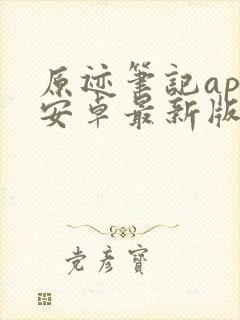 原迹筆記ap
安卓最新版
党彦寶